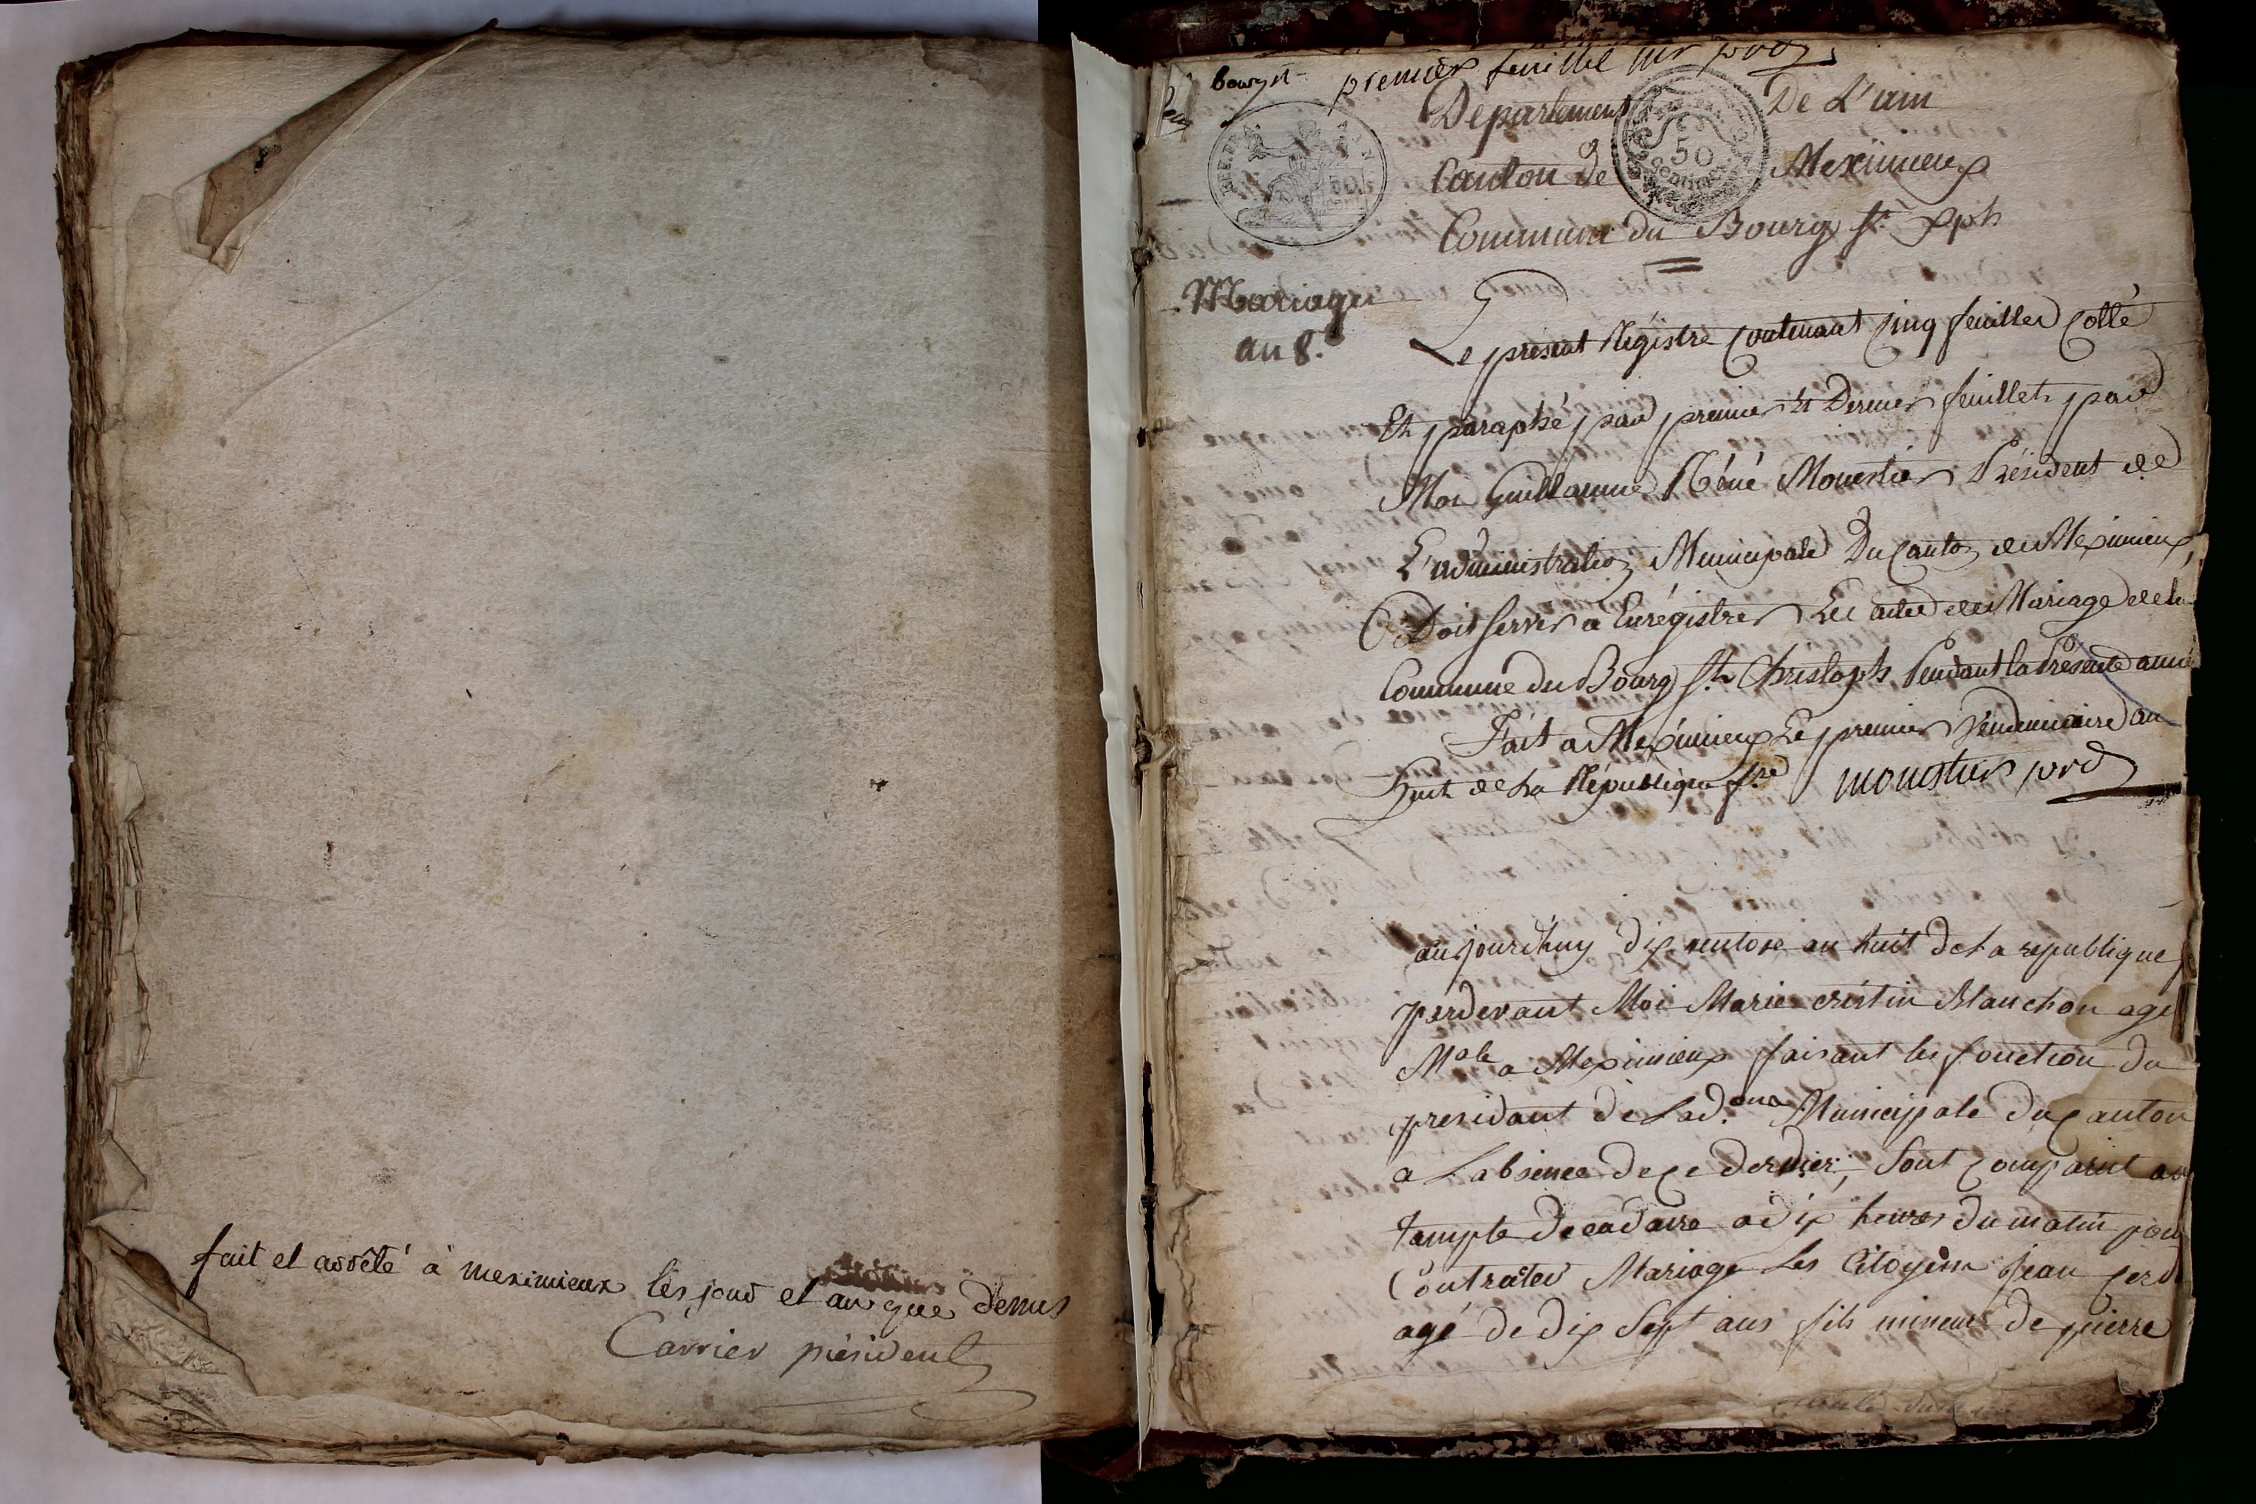 fait et arrêté à meximieux les jour et an que denus
Carrier président
bourg st
premier feuillet mr prd
Departement De L'ain
Canton de Meximieux
Commune du Bourg St Xph
50
Mariages
an 8.
Le present Régistre Contenant Cinq feuilles Cotté
Et paraphé par premier et Dernier feuillet par
Moi Guillaume Réné Monestier Président de
L'administration Municipale Du Canton de Meximieux,
Doit servir a Enrégistrer Les actes de Mariage de la
Commune du Bourg St Christoph Pendant la Présente année
Fait a Meximieux Le premier Vendemiaire an
huit de La République fse monestier prd
aujourdhuy dix ventose an huit de La republique
perdevant Moi Marie cristin Blanchon age
Male a Meximieux faisant les fonction du
presidant de Lad.on Municipale du Canton
a Labsence de Ce dernier, sont Comparut au
Tample decadaire a dix heures du matin pour
Contracter Mariage Les Citoyens Jean
agé de dix sept ans fils mineur de pierre